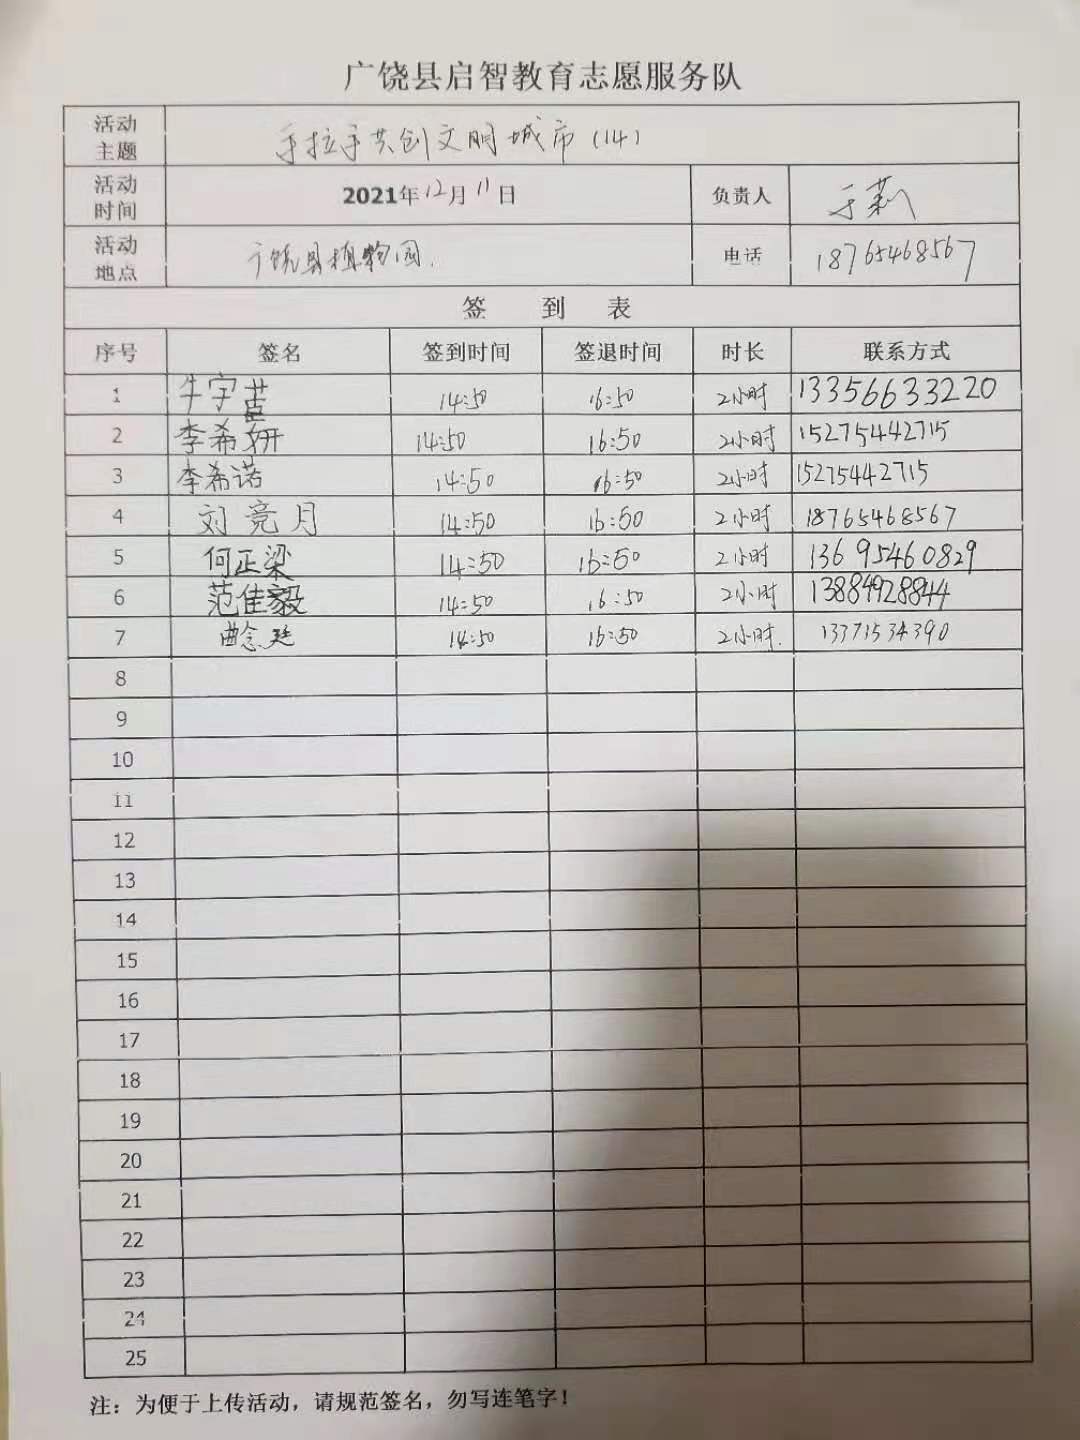 广饶县启智教育志愿服务队
活动主题 手拉手共创文明城市(14)
活动时间 2021年12月11日 负责人 于莉
活动地点 广饶县植物园. 电话 18765468567
签 到 表
序号 签名 签到时间 签退时间 时长 联系方式
1 牛宇 14:50 16:50 2小时 13356633220
2 李希妍 14:50 16:50 2小时 15275442715
3 李希诺 14:50 16:50 2小时 15275442715
4 刘竞月 14:50 16:50 2小时 18765468567
5 何正梁 14:50 16:50 2小时 13695460829
6 范佳毅 14:50 16:50 2小时 13884928844
7 曲念廷 14:50 16:50 2小时. 13371534390
8
9
10
11
12
13
14
15
16
17
18
19
20
21
22
23
24
25
注：为便于上传活动，请规范签名，勿写连笔字！